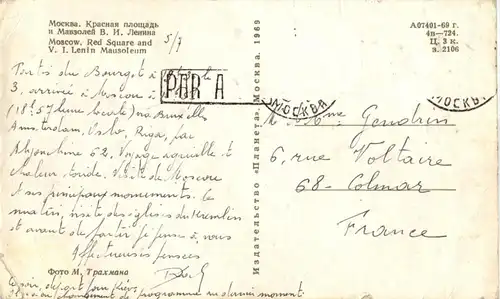 Москва. Красная площадь
и Мавзолей В. И. Ленина
Moscow. Red Square and
V. I. Lenin Mausoleum
5/7
Partis du Bourget à
3, arrivée à Moscou à
(18h57 heure locale) via Bruxelles
Amsterdam, Oslo, Riga, par
Iliouchine 62. Voyage agréable et
chaleur torride. Visite de Moscou
et ses principaux monuments. Ce
matin, visite des églises du Kremlin
et avant de partir je pense à vous
Affectueuses pensées
Фото М. Трахмана
Ce soir, départ pour
changement de programme au dernier moment
Издательство «Планета». Москва. 1969
PAR A
МОСКВА
МОСКВ
А07401-69 г.
4п—724.
Ц. 3 к.
з. 2106
M. Mme Gendrin
6, rue Voltaire
68 - Colmar
France